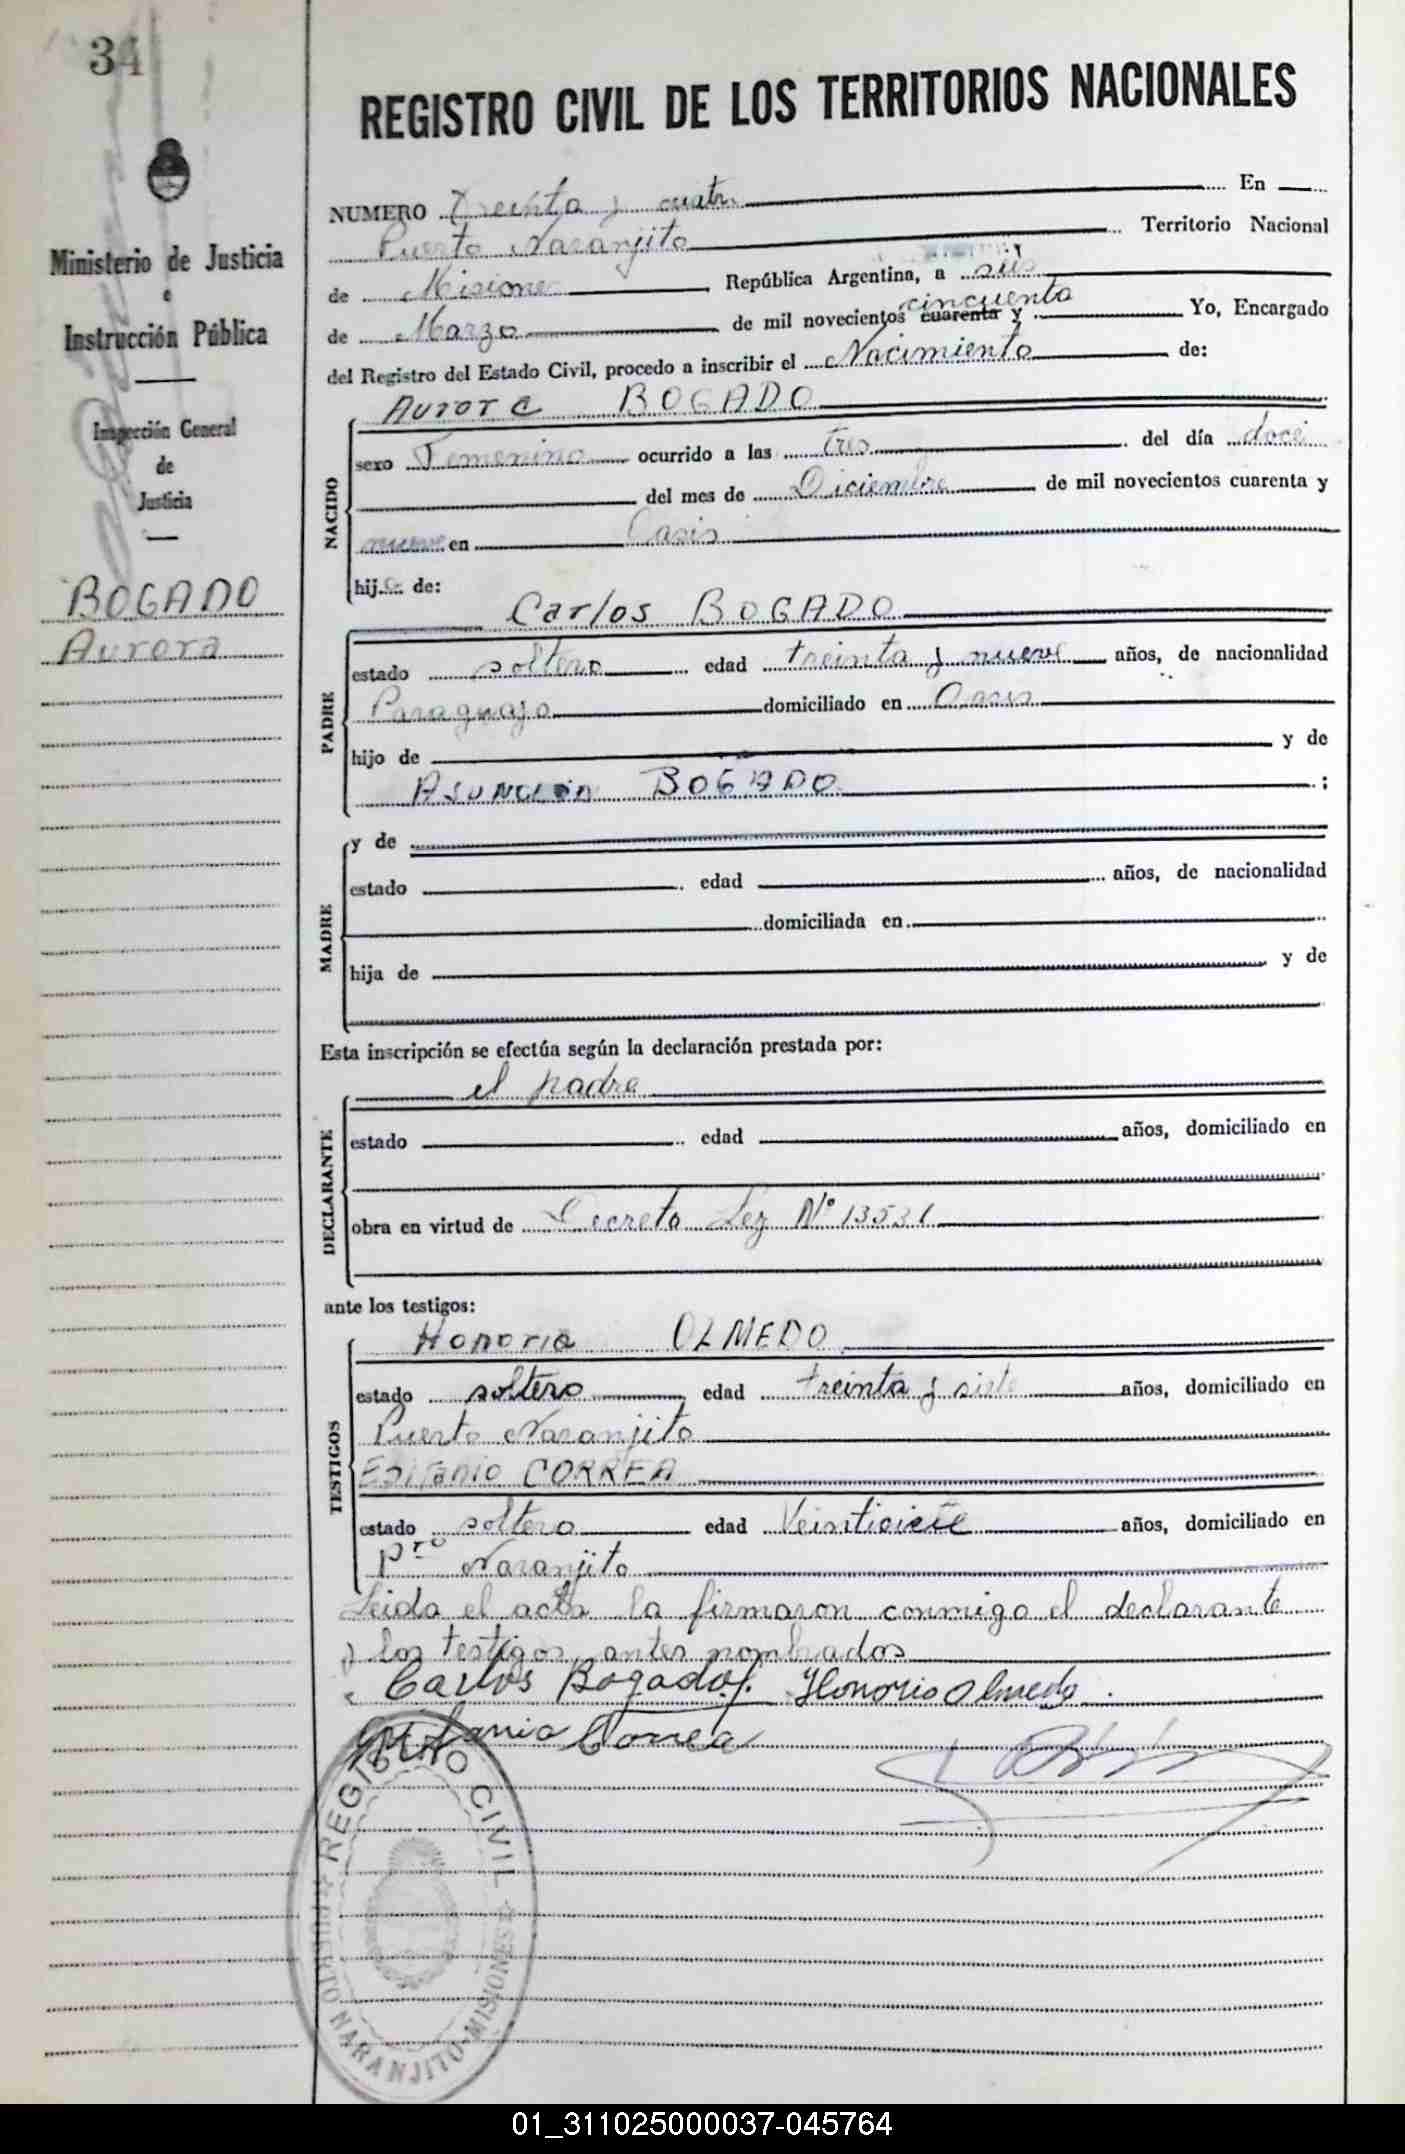 34
REGISTRO CIVIL DE LOS TERRITORIOS NACIONALES
Ministerio de Justicia
e
Instrucción Pública
Inspección General
de
Justicia
BOGADO
Aurora
NUMERO Treinta y cuatro En
Puerto Naranjito Territorio Nacional
de Misiones República Argentina, a seis
de Marzo de mil novecientos cuarenta y cincuenta Yo, Encargado
del Registro del Estado Civil, procedo a inscribir el Nacimiento de:
Aurora BOGADO
NACIDO
sexo Femenino ocurrido a las tres del día doce
del mes de Diciembre de mil novecientos cuarenta y
nueve en Oasis
hija de:
Carlos BOGADO
PADRE
estado soltero edad treinta y nueve años, de nacionalidad
Paraguayo domiciliado en Oasis
hijo de y de
Asunción BOGADO ;
MADRE
y de
estado edad años, de nacionalidad
domiciliada en
hija de y de
Esta inscripción se efectúa según la declaración prestada por:
el padre
DECLARANTE
estado edad años, domiciliado en
obra en virtud de Decreto Ley Nº 13531
ante los testigos:
Honorio OLMEDO
TESTIGOS
estado soltero edad treinta y siete años, domiciliado en
Puerto Naranjito
Epifanio CORREA
estado soltero edad Veinticiete años, domiciliado en
Pto Naranjito
Leida el acta la firmaron conmigo el declarante
y los testigos antes nombrados
Carlos Bogado Honorio Olmedo
Epifanio Correa
REGISTRO CIVIL
PUERTO NARANJITO-MISIONES
01_311025000037-045764